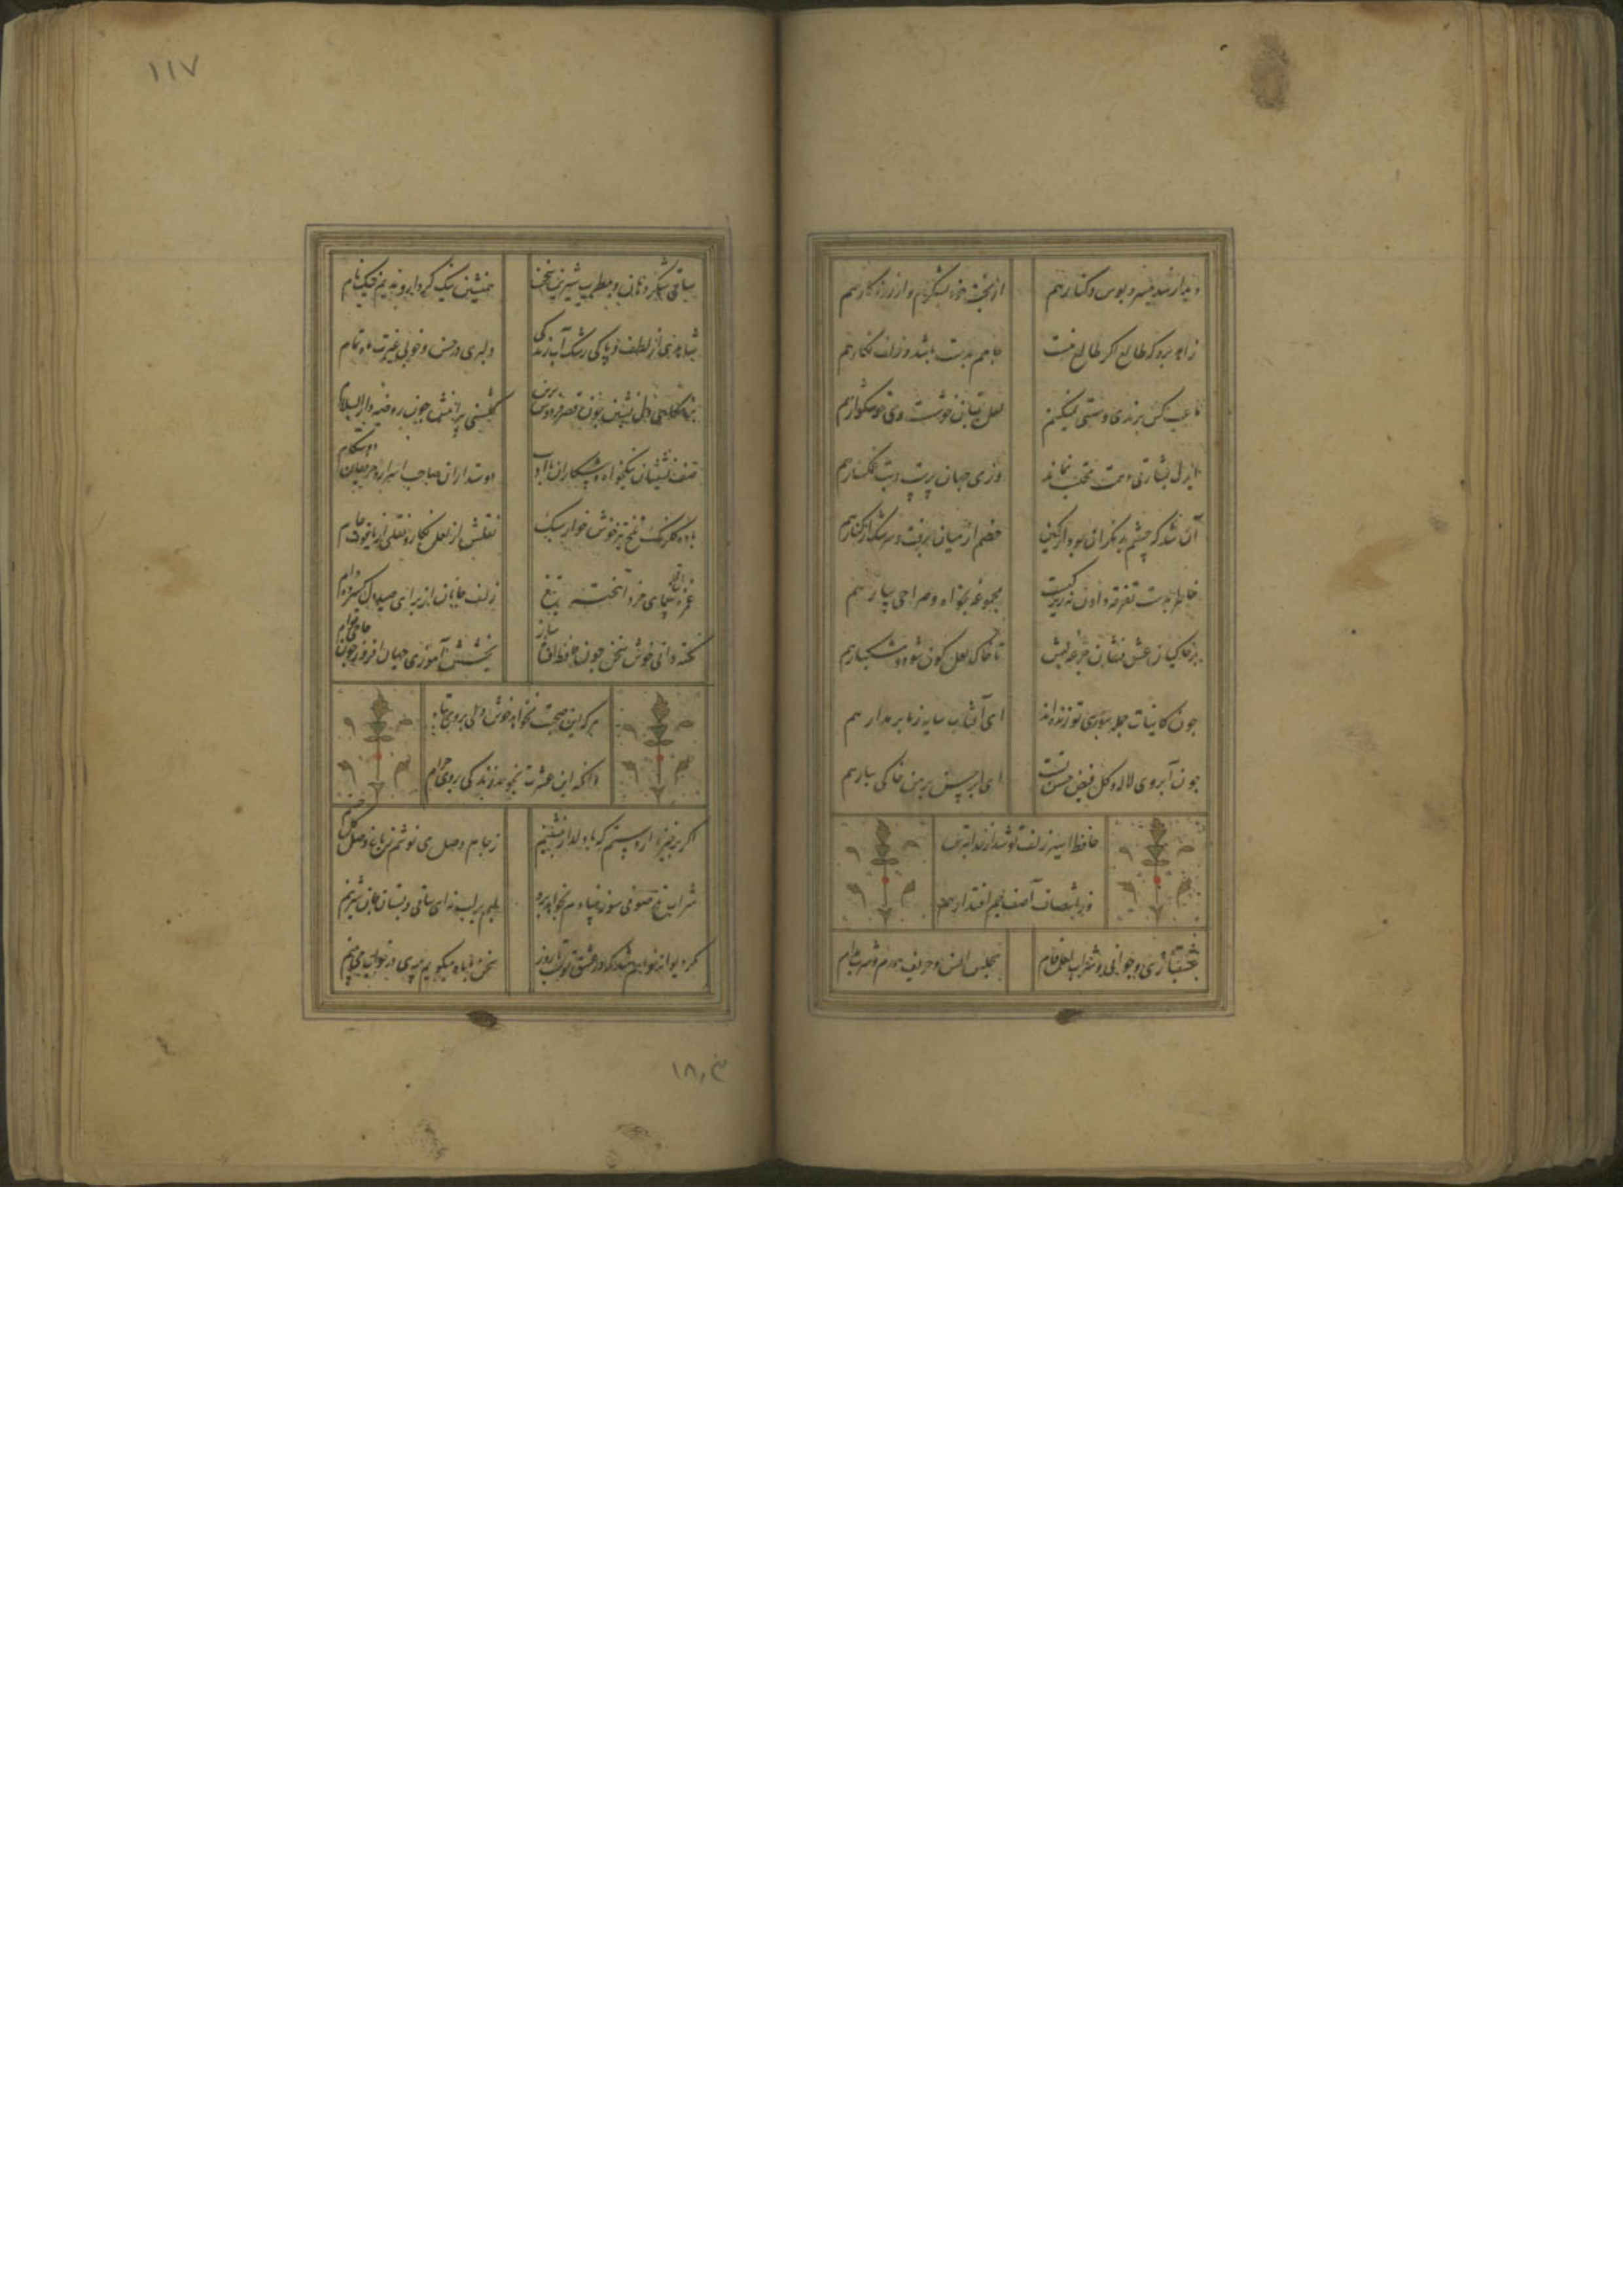 دیدار شد میسر و بوس و کنار هم از بخت خود بشکرم و از روزگار هم
زاهد برو که طالع اگر طالع منست جامم بدست باشد و زلف نگار هم
ما عیب کس برندی و مستی نمیکنیم لعل بتان خوشست و می خوشگوار هم
ای دل بشارتی دهمت محتسب نماند وز می جهان پرست و بت میگسار هم
آن شد که چشم بد نگران بود از کمین خصم از میان برفت و سرشک از کنار هم
خاطر بدست تفرقه دادن نه زیرکیست مجموعه بخواه و صراحی بیار هم
بر خاکیان عشق فشان جرعه لبش تا خاک لعل کون شود و مشکبار هم
چون کاینات جمله ببوی تو زنده اند ای آفتاب سایه ز ما بر مدار هم
چون آبروی لاله و کل فیض حسن تست ای ابر بر من خاکی ببار هم
حافظ اسیر زلف تو شد از خدا بترس
وز انتصاف آصف جم اقتدار هم
عشقبازی و جوانی و شراب لعل فام مجلس انس و حریف همدم و شرب مدام
۱۱۷
ساقی شکر دهان و مطرب شیرین سخن همنشین نیک کردار و ندیم نیک نام
شاهدی از لطف و پاکی رشک آب زندگی دلبری در حسن و خوبی غیرت ماه تمام
بزمگاهی دل نشین چون قصر فردوس برین گلشنی پیرامنش چون روضه دار السلام
صف نشینان نیکخواه و پیشکاران با ادب دوستداران صاحب اسرار و حریفان دوستکام
باده گلرنگ تلخ تیز خوش خوار سبک نقلش از لعل نگار و نقلی از یاقوت خام
غمزه ساقی بیغمای خرد آهخته تیغ زلف جانان از برای صید دل گسترده دام
نکته دانی خوش سخن چون حافظ بخشش آموزی جهان افروز چون حاجی قوام
هر که این صحبت نخواهد خوش دلی بر وی تباه
وانکه این عشرت نجوید زندگی بر وی حرام
اگر برخیزد از دستم که با دلدار بنشینم ز جام وصل می نوشم ز باغ وصل گل چینم
شراب تلخ صوفی سوز بنیادم بخواهد برد لبم بر لب نه ای ساقی و بستان جان شیرینم
مگر دیوانه خواهم شد که در عشق تو شب تا روز سخن با ماه میگویم پری در خواب می بینم